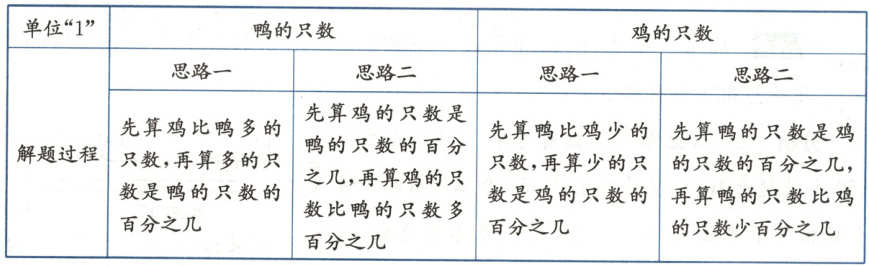 单位“1”
鸭的只数
鸡的只数
解题过程
思路一
思路二
思路一
思路二
先算鸡比鸭多的
只数,再算多的只
数是鸭的只数的
百分之几
先算鸡的只数是
鸭的只数的百分
之几,再算鸡的只
数比鸭的只数多
百分之几
先算鸭比鸡少的
只数,再算少的只
数是鸡的只数的
百分之几
先算鸭的只数是鸡
的只数的百分之几,
再算鸭的只数比鸡
的只数少百分之几